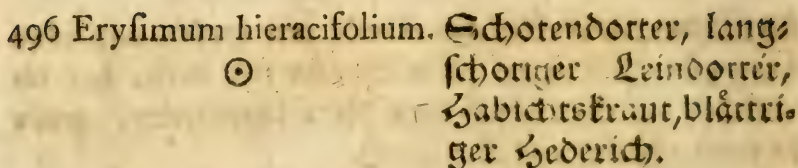 496 Eryſimum hieracifolium. Schotendotter, lang⸗
☉ ſchotiger Leindotter,
Habichtskraut, blåttri⸗
ger Hederich.